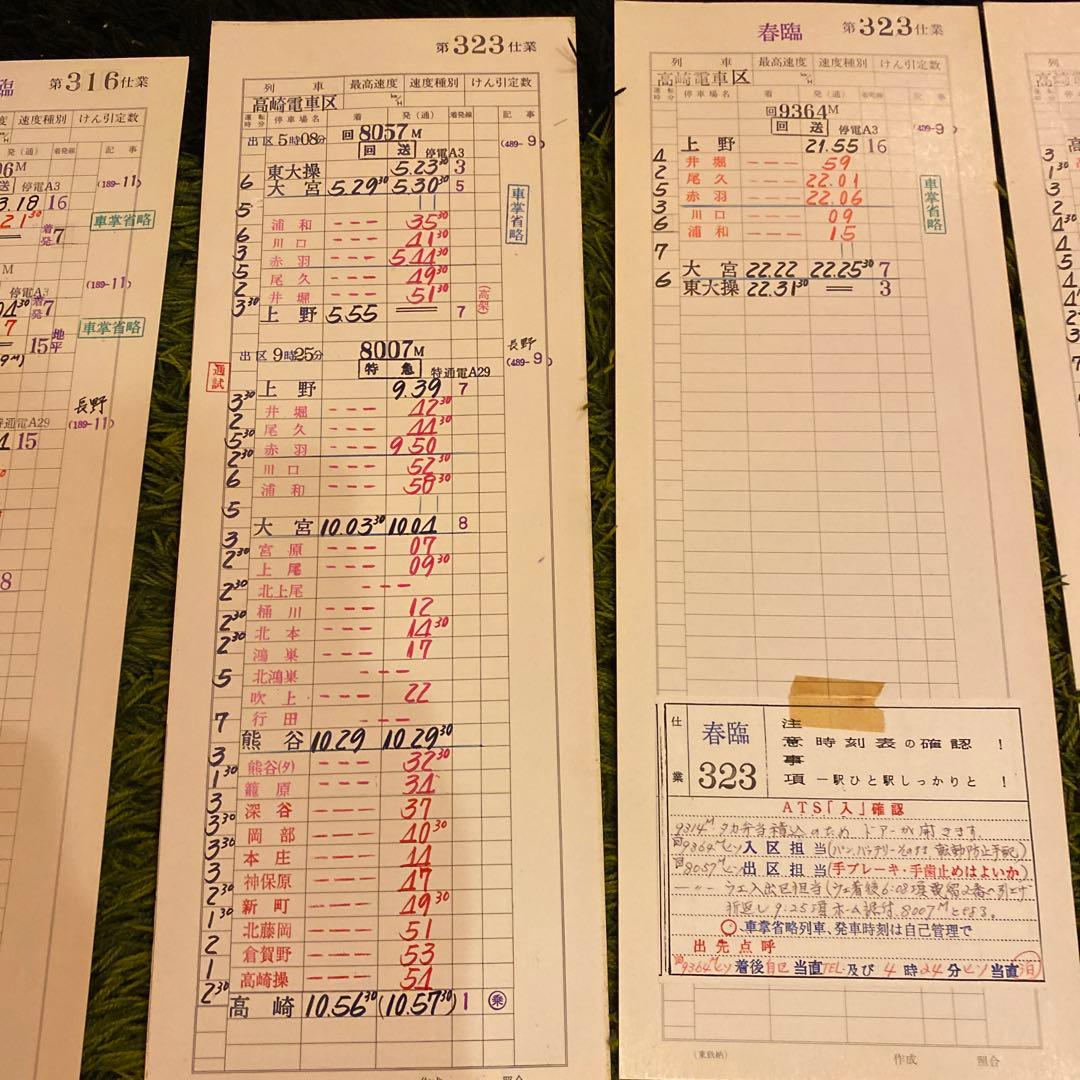 臨 第316仕業
速度種別 けん引定数
発(通) 着発線 記事
停電A3 (189-11)
3.18 16
車掌省略
着発7
(189-11)
停電A3
着発7
車掌省略
15 地平
長野
特通電A29 (189-11)
15
8
第323仕業
列車 最高速度 速度種別 けん引定数
高崎電車区 km/H
運転時分 停車場名 着 発(通) 着発線 記事
出区5時08分 回8057M (489-9)
回送 停電A3
東大操 5.23 30 3
6 大宮 5.29 30 5.30 30 5
車掌省略
5
浦和 --- 35 30
6 川口 --- 41 30
3 赤羽 --- 5.44 30
5 尾久 --- 49 30
2 井堀 --- 51 30
(高梨)
3 30 上野 5.55 == 7
出区9時25分 8007M 長野 (489-9)
通試 特急 特通電A29
上野 9.39 7
3 30 井堀 --- 42 30
2 尾久 --- 44 30
5 30 赤羽 --- 9 50
2 30 川口 --- 52 30
6 浦和 --- 58 30
5
大宮 10.03 30 10.04 8
3 宮原 --- 07
2 30 上尾 --- 09 30
北上尾 ---
2 30 桶川 --- 12
2 30 北本 --- 14 30
2 30 鴻巣 --- 17
北鴻巣 ---
5 吹上 --- 22
行田 ---
7 熊谷 10.29 10.29 30
3 熊谷(タ) --- 32 30
1 30 籠原 --- 34
3 深谷 --- 37
3 30 岡部 --- 40 30
3 30 本庄 --- 44
3 神保原 --- 47
2 30 新町 --- 49 30
1 30 北藤岡 --- 51
2 倉賀野 --- 53
1 高崎操 --- 54
2 30 高崎 10.56 30 (10.57 30) 1 乗
春臨 第323仕業
列車 最高速度 速度種別 けん引定数
高崎電車区 km/H
運転時分 停車場名 着 発(通) 着発線 記事
回9364M
回送 停電A3 (489-9)
上野 21.55 16
4 井堀 --- 59
2 尾久 --- 22.01
5 赤羽 --- 22.06
3 川口 --- 09
6 浦和 --- 15
車掌省略
7
大宮 22.22 22.25 30 7
6 東大操 22.31 30 == 3
仕業 春臨 323
注意事項
時刻表の確認!
一駅ひと駅しっかりと!
ATS「入」確認
9314M タカ弁当積込のため ドアーが開きます.
回9364Mヒソ 入区担当(パン,バッテリーそのまま 転動防止手配)
回8057Mヒソ 出区担当(手ブレーキ・手歯止めはよいか)
―〃― ウエ入出区担当(ウエ着後6:08頃電留2番へ引上げ
折返し9:25頃ホーム据付.8007Mとなる。
○.車掌省略列車、発車時刻は自己管理で
出先点呼
回9364Mヒソ 着後 自区 当直TEL.及び4時24分ヒソ当直
(東鉄納) 作成 照合